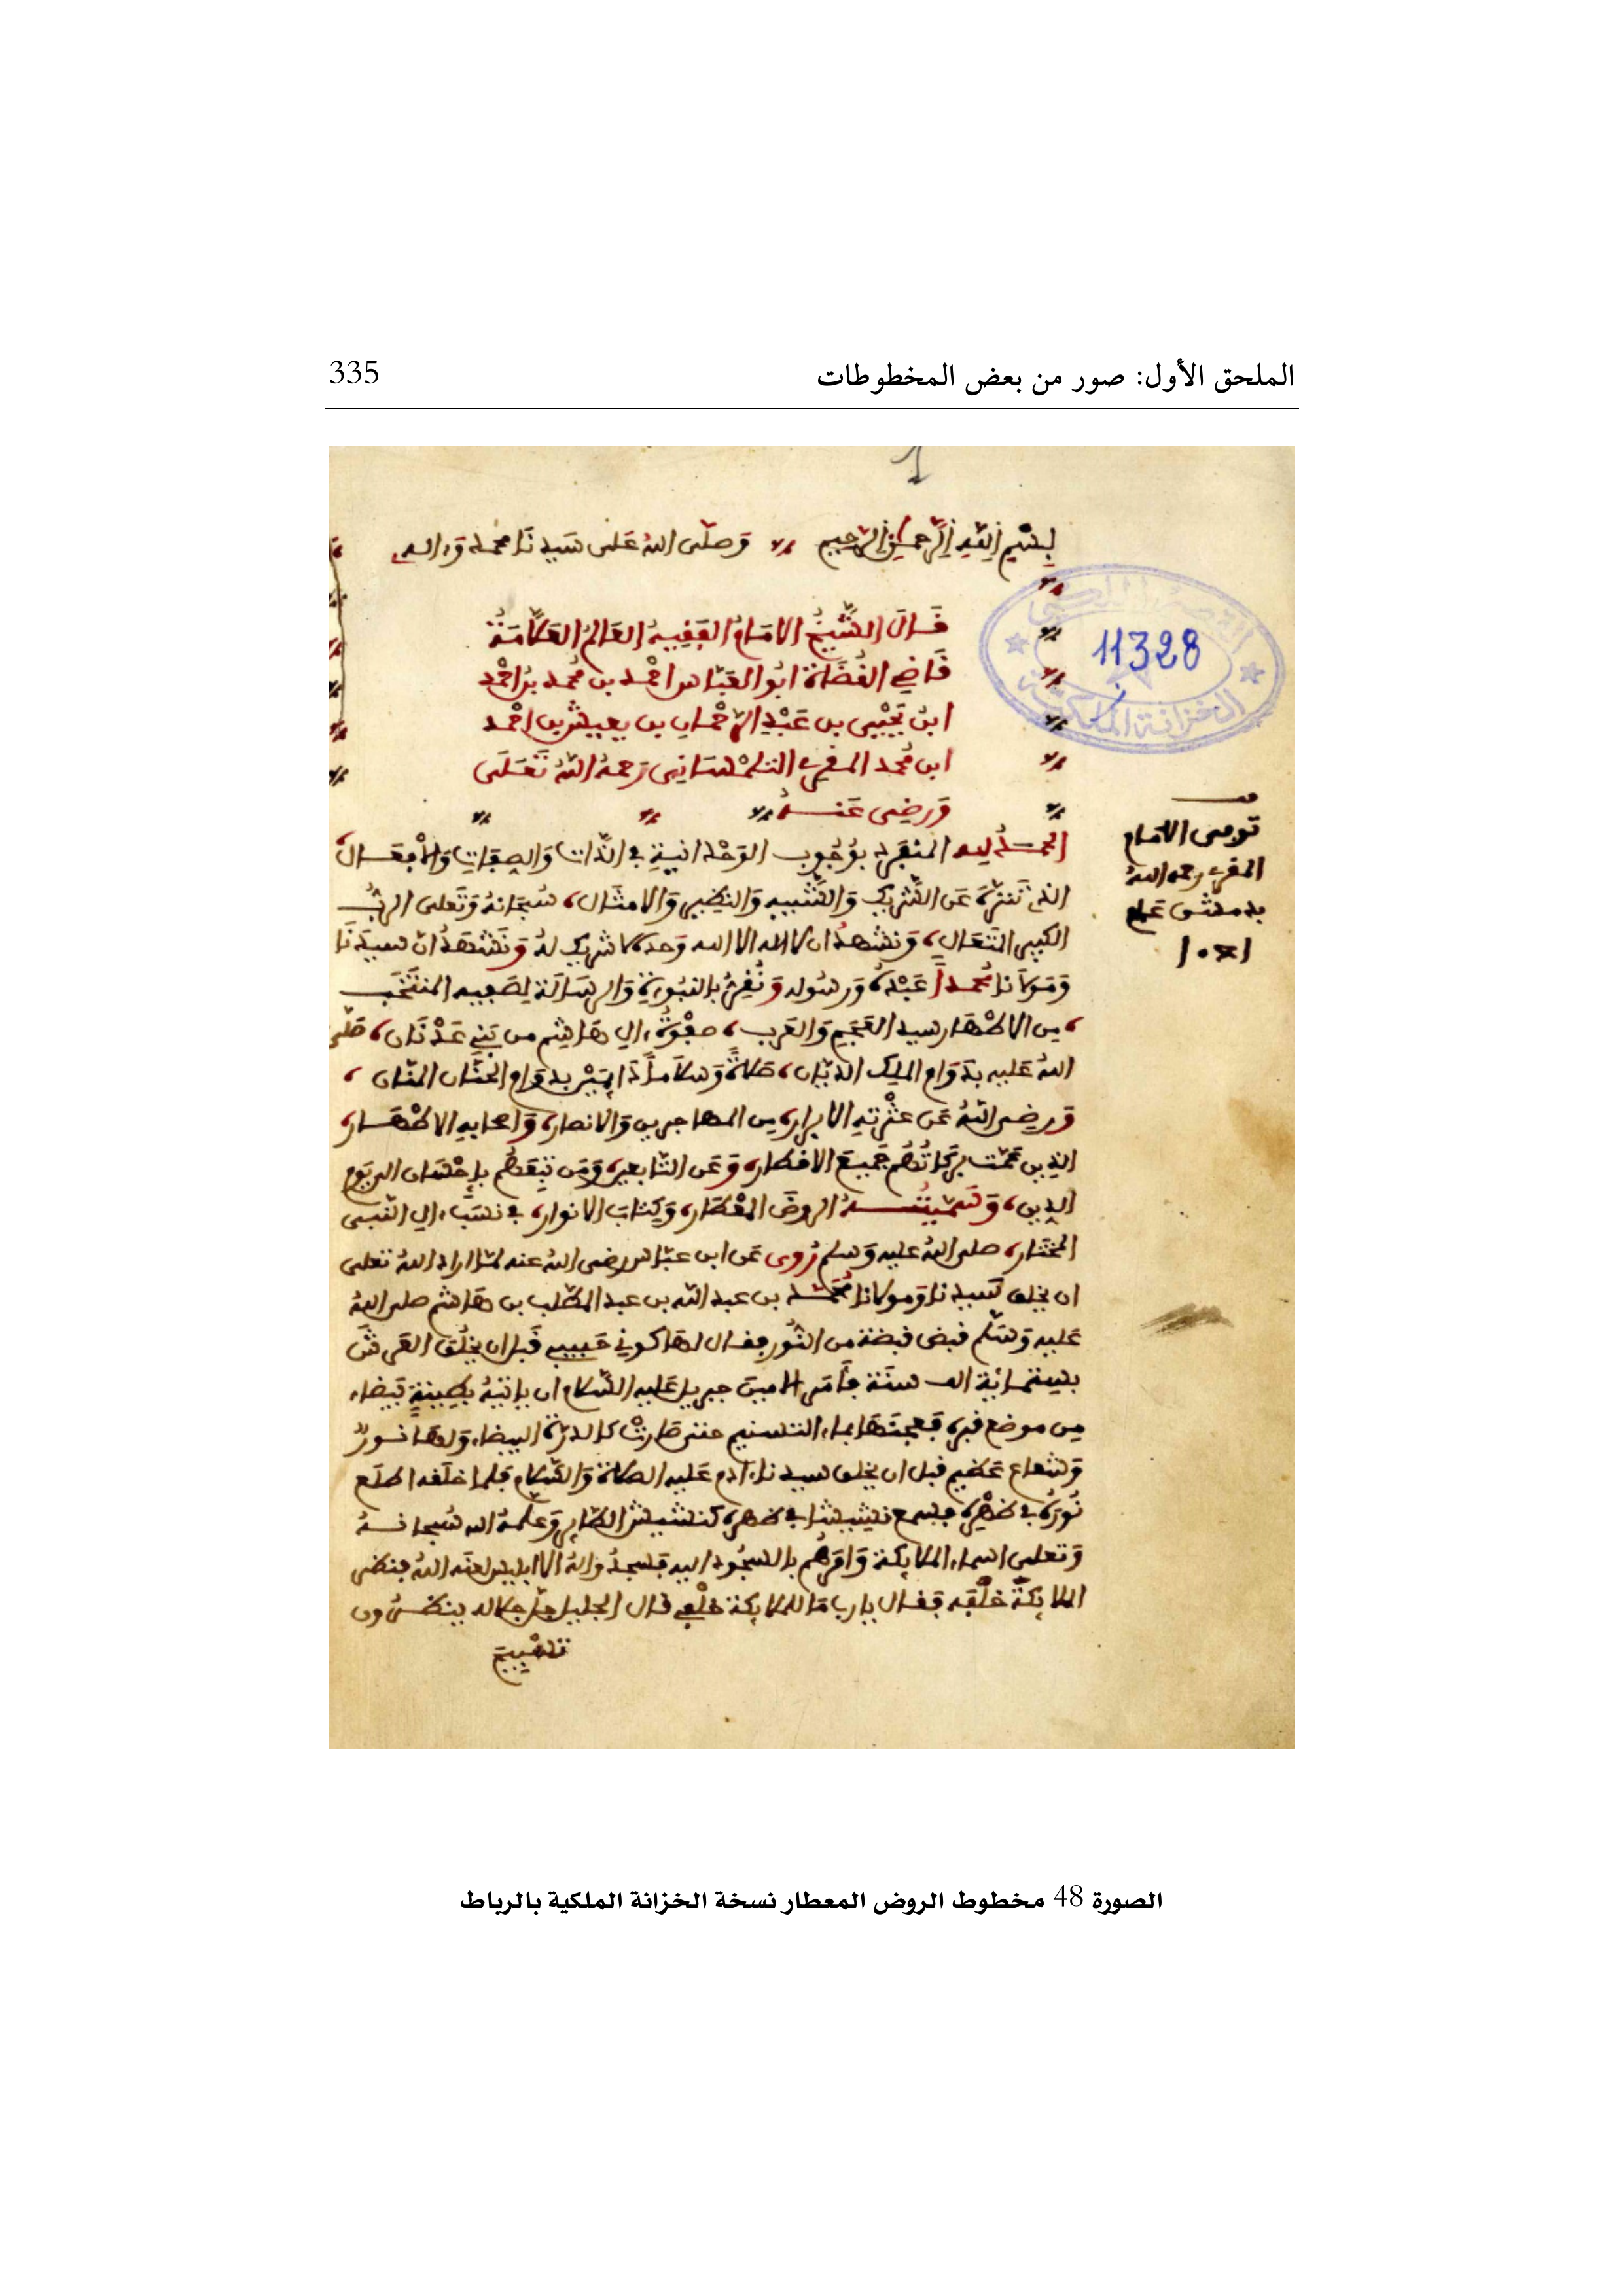 الملحق الأول: صور من بعض المخطوطات 335
1
بِسْمِ اللهِ الرَّحمٰنِ الرَّحيم وَصلّى اللهُ عَلى سَيدِنَا محمد وَءاله
قَالَ الشَّيْخُ الامَامُ الفَقِيهُ العَالمُ العَلاَّمَةُ
قَاضِي القُضَاة ابُو العَبّاس احْمد بن مُحمد بن احْمد
ابن يَحْيى بن عَبْدِ الرّحْمان بن يعيش بن احْمد
ابن مُحمد المقري التلمْسَانِي رَحمهُ اللهُ تَعَلَى
وَرَضِي عَنهُ
القصر الملكي
11328
الخزانة الملكية
توفى الامام
المقري رحمه اللهُ
بدمشق عام
١٠٤١
الحمدُ لله المنفرد بوُجُوب الوَحْدانيةِ في الذّات وَالصِفَاتِ وَالأفعَال
الذي تَنَزّهَ عَن الشّريك وَالشّبيه وَالنظير وَالامثَال، سُبحانهُ وَتَعلى الربُّ
الكبير المتَعَال، وَنشهدُ ان لا اله الا الله وَحدَه لا شريك لهُ وَنَشْهَدُ انّ سيدَنَا
وَمَولانَا مُحمداً عَبْدهُ وَرسُوله وَنُقِرُّ بالنبُوءة وَالرسَالَة لِصَفِيه المنتَخَب
من الاطْهَار سيد العَجَم وَالعَرب، صفْوَةُ ءال هَاشم من بَنِي عَدْنَان، صَلّى
اللهُ عَليه بدَوَام الملِك الديّان، صَلاةً وَسَلاَماً دَايمَيْن بدوَام الحنّان المنّان،
وَرضي اللهُ عَن عتْرَتِهِ الابرار، من المهاجرين وَالانصار، وَاصحابهِ الاطْهَار،
الذين عَمّت بركَاتُهُم جَميعَ الاقطار، وَعَن التّابعين، وَمَن تَبِعَهُم بإحْسَان الى يَوم
الدين، وَسَمّيْتُهُ الروضَ المعْطَار، وَكتابَ الانوار، في نسَب ءال النّبي
المختار، صلى اللهُ عليه وَسلم رُوى عَن ابن عبّاس رضى اللهُ عنه لمّا اراد اللهُ تعلى
ان يخلق سَيدنا وَمولانا مُحَمّد بن عبد الله بن عبد المطّلب بن هَاشم صلى اللهُ
عَليه وَسَلّم قبض قبضة من النُّور فقال لهَا كوني حَبيبي قَبل ان يخلُق العَرشَ
بستمائة الف سنَة فأمَر الامين جبريل عَليه السّلام ان ياتيَهُ بطِينةٍ بَيضاء
من موضع قبره فعجنَهَا بماء التسنيم حتى صَارتْ كالدرّة البيضاء وَلهَا نورٌ
وَشعاع عَظيم قبل ان يخلق سيدنا ءادم عَليه الصلاة وَالسّلام فلما خلَقه اطلَع
نُورَهُ في ظهْرِهِ فسمع نشيشا في ظهره كنشيش الطّاير وَعَلّمهُ الله سُبحانهُ
وَتعلى اسماء الملايكة وَامَرهُم بالسجُود اليه فسجدُوا لهُ الا ابليس لعنه اللهُ فنظر
الملايكةَ خلْفه فقال يا رب مَا للملايكة خلْفِي قال الجليل جلّ جلاله ينظُرُون
تسْبيحَ
الصورة 48 مخطوط الروض المعطار نسخة الخزانة الملكية بالرباط